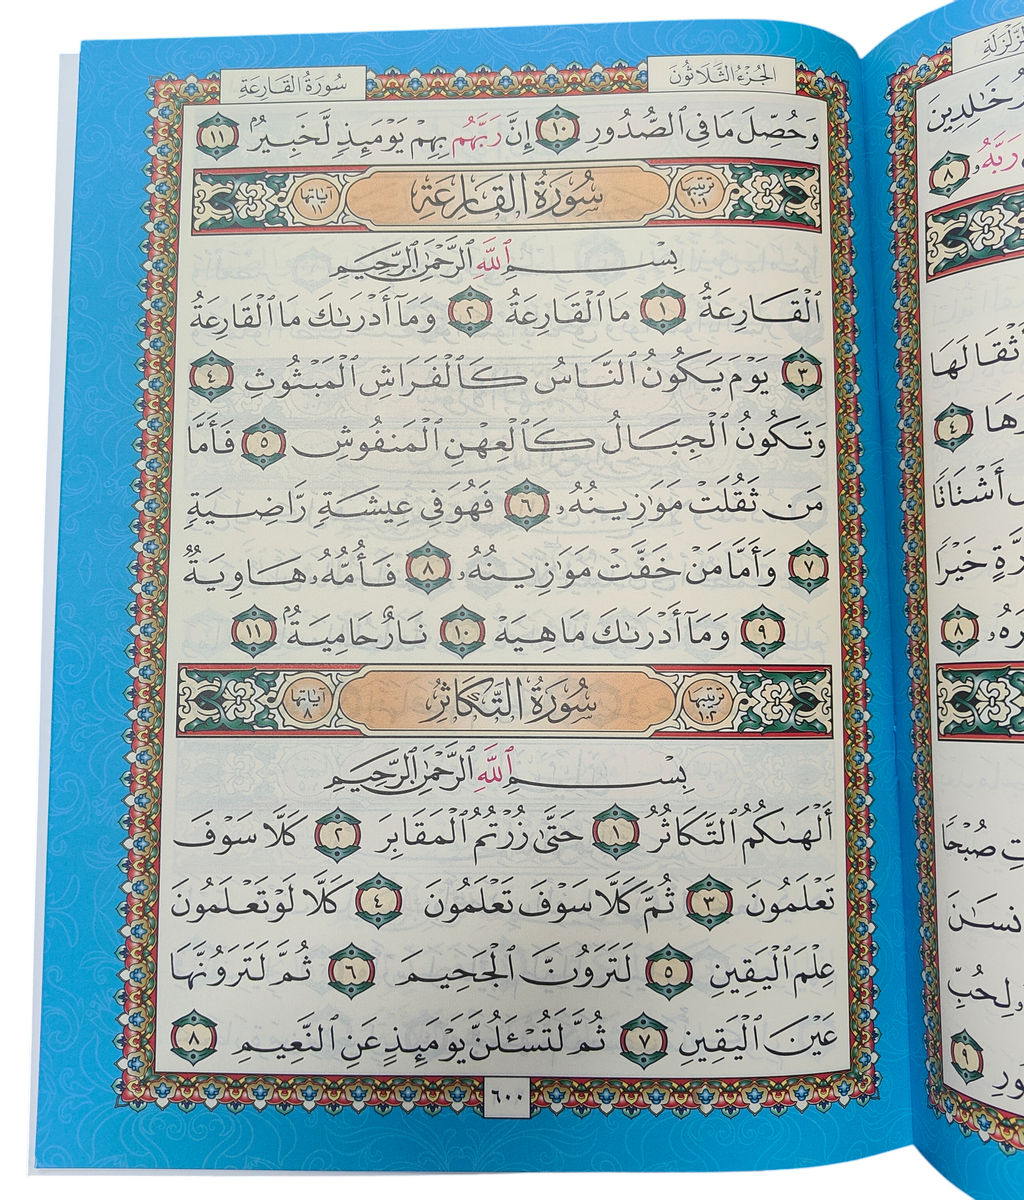 سُورَةُ القَارِعَةِ
الجُزْءُ الثَّلَاثُونَ
وَحُصِّلَ مَا فِي ٱلصُّدُورِ ١٠ إِنَّ رَبَّهُم بِهِمْ يَوْمَئِذٍ لَّخَبِيرٌۢ ١١
ترتيبها ١٠١ سُورَةُ القَارِعَةِ آياتها ١١
بِسْمِ ٱللَّهِ ٱلرَّحْمَٰنِ ٱلرَّحِيمِ
ٱلْقَارِعَةُ ١ مَا ٱلْقَارِعَةُ ٢ وَمَآ أَدْرَىٰكَ مَا ٱلْقَارِعَةُ
٣ يَوْمَ يَكُونُ ٱلنَّاسُ كَٱلْفَرَاشِ ٱلْمَبْثُوثِ ٤
وَتَكُونُ ٱلْجِبَالُ كَٱلْعِهْنِ ٱلْمَنفُوشِ ٥ فَأَمَّا
مَن ثَقُلَتْ مَوَٰزِينُهُۥ ٦ فَهُوَ فِي عِيشَةٍ رَّاضِيَةٍ
٧ وَأَمَّا مَنْ خَفَّتْ مَوَٰزِينُهُۥ ٨ فَأُمُّهُۥ هَاوِيَةٌ
٩ وَمَآ أَدْرَىٰكَ مَا هِيَهْ ١٠ نَارٌ حَامِيَةٌۢ ١١
ترتيبها ١٠٢ سُورَةُ التَّكَاثُرِ آياتها ٨
بِسْمِ ٱللَّهِ ٱلرَّحْمَٰنِ ٱلرَّحِيمِ
أَلْهَىٰكُمُ ٱلتَّكَاثُرُ ١ حَتَّىٰ زُرْتُمُ ٱلْمَقَابِرَ ٢ كَلَّا سَوْفَ
تَعْلَمُونَ ٣ ثُمَّ كَلَّا سَوْفَ تَعْلَمُونَ ٤ كَلَّا لَوْ تَعْلَمُونَ
عِلْمَ ٱلْيَقِينِ ٥ لَتَرَوُنَّ ٱلْجَحِيمَ ٦ ثُمَّ لَتَرَوُنَّهَا
عَيْنَ ٱلْيَقِينِ ٧ ثُمَّ لَتُسْـَٔلُنَّ يَوْمَئِذٍ عَنِ ٱلنَّعِيمِ ٨
٦٠٠
خَٰلِدِينَ
رَبَّهُۥ ٨
أَثْقَالَهَا
٤
أَشْتَاتًا
خَيْرًا
٨
صُبْحًا
لِحُبِّ
٩